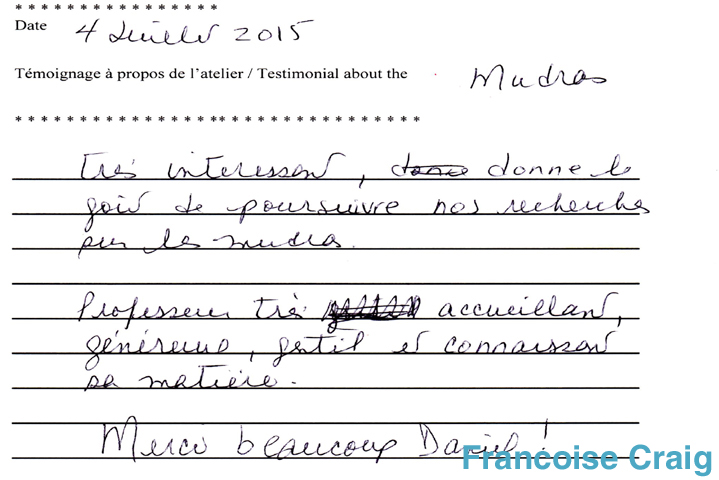 * * * * * * * * * * * * * * * *
Date 4 Juillet 2015
Témoignage à propos de l'atelier / Testimonial about the Mudras
* * * * * * * * * * * * * * * * * * * * * * * * * * * * * * * *
très interessant, donne donne le
goût de poursuivre nos recherches
sur les mudras.
Professeur très accueillant,
généreux, gentil et connaissant
sa matière.
Merci beaucoup Daniel !
Francoise Craig